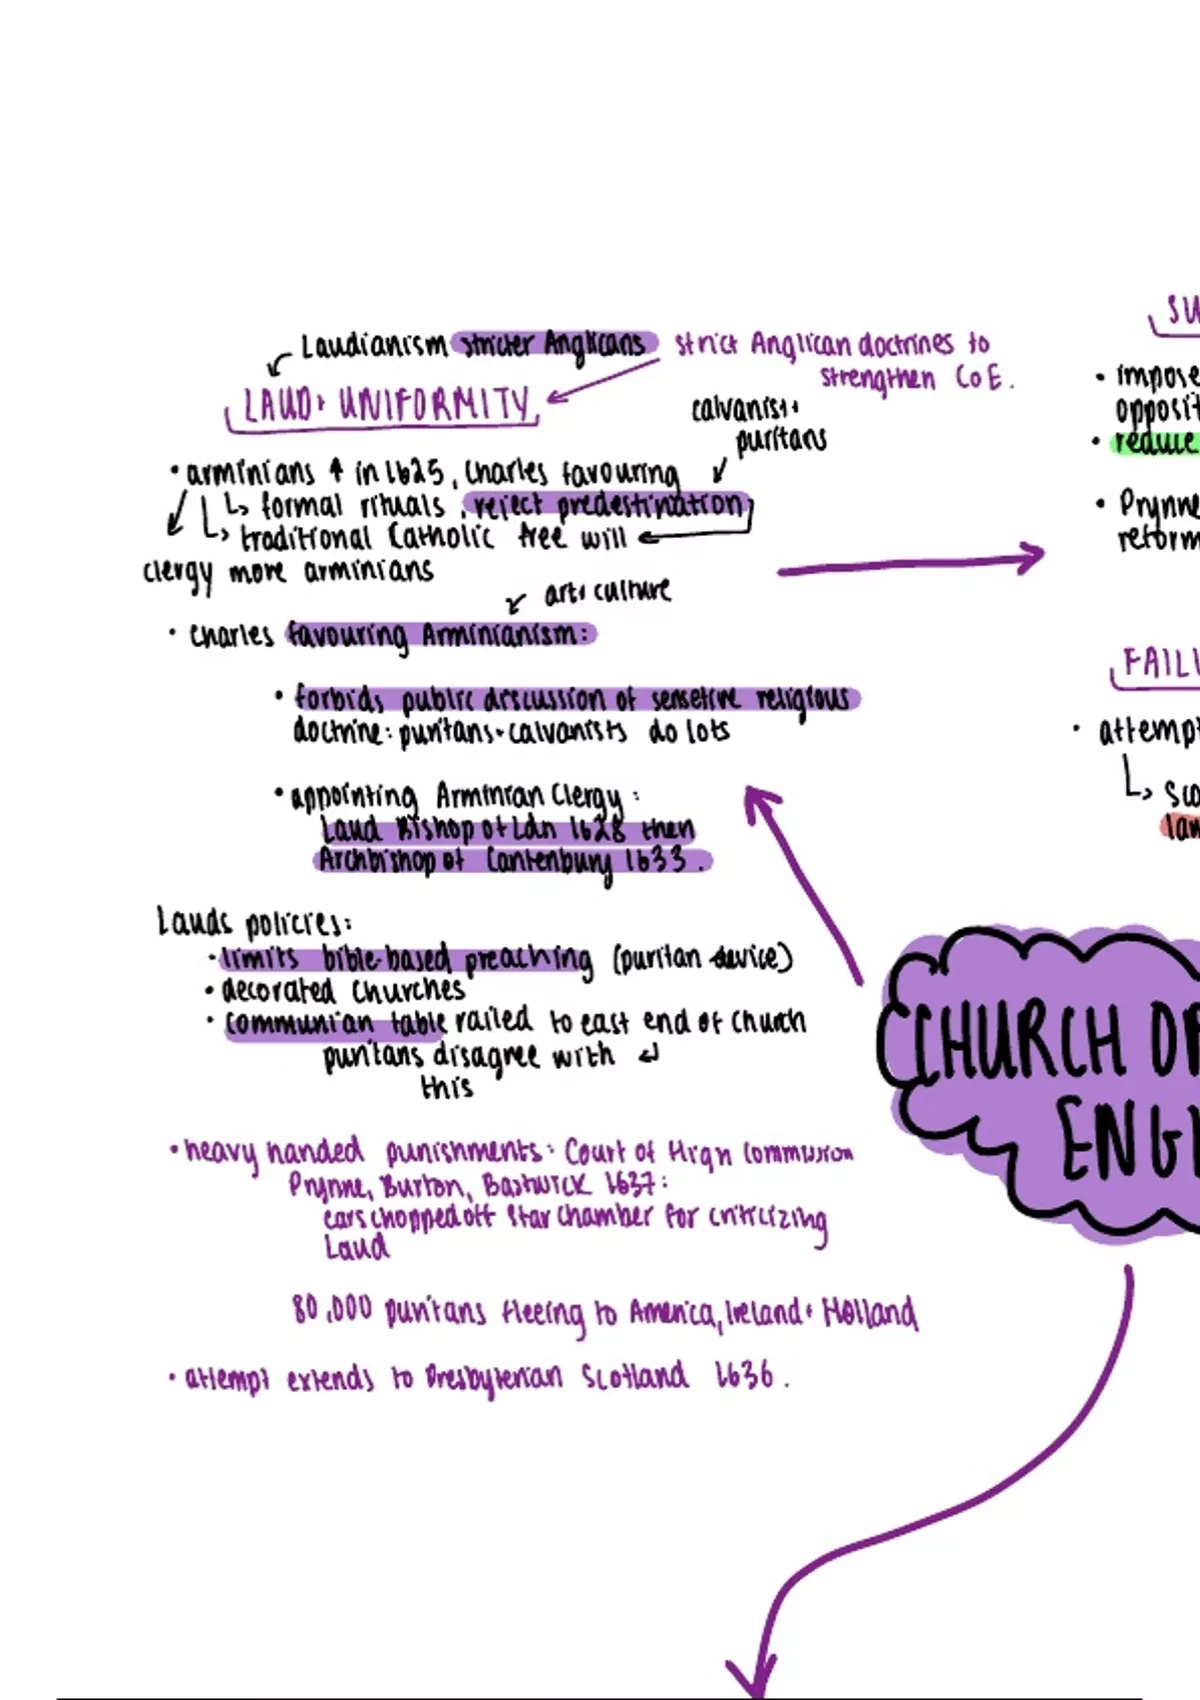 Laudianism stricter Anglicans
strict Anglican doctrines to
strengthen CoE.
LAUD + UNIFORMITY
calvanist +
puritans
• arminians ↑ in 1625, Charles favouring
↳ formal rituals, reject predestination
↳ traditional Catholic free will
clergy more arminians
art + culture
• Charles favouring Arminianism:
• forbids public discussion of sensetive religious
doctrine: puritans + calvanists do lots
• appointing Arminian Clergy:
Laud Bishop of Ldn 1628 then
Archbishop of Cantenbury 1633.
Lauds policies:
• limits bible-based preaching (puritan device)
• decorated churches
• communian table railed to east end of church
puritans disagree with
this
• heavy handed punishments: Court of High Commission
Prynne, Burton, Bastwick 1637:
ears chopped off Star Chamber for criticizing
Laud
80,000 puritans fleeing to America, Ireland + Holland
• attempt extends to Presbyterian Scotland 1636.
CHURCH OF
ENGL
SU
• impose
opposit
• reduce
• Prynne
reform
FAILU
• attempt
↳ Sco
law